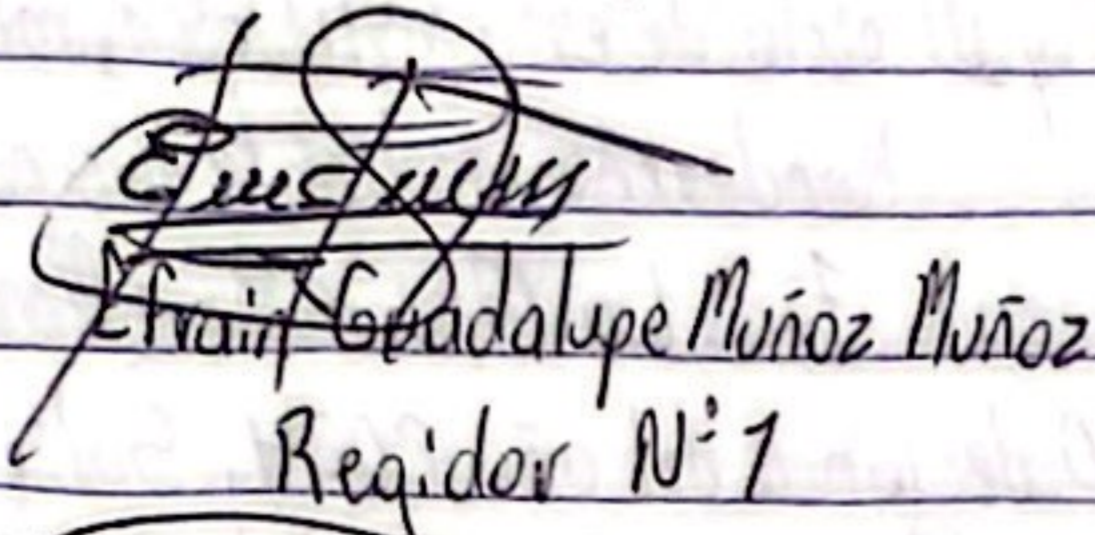 Efrain Guadalupe Muñoz Muñoz
Regidor Nº 1